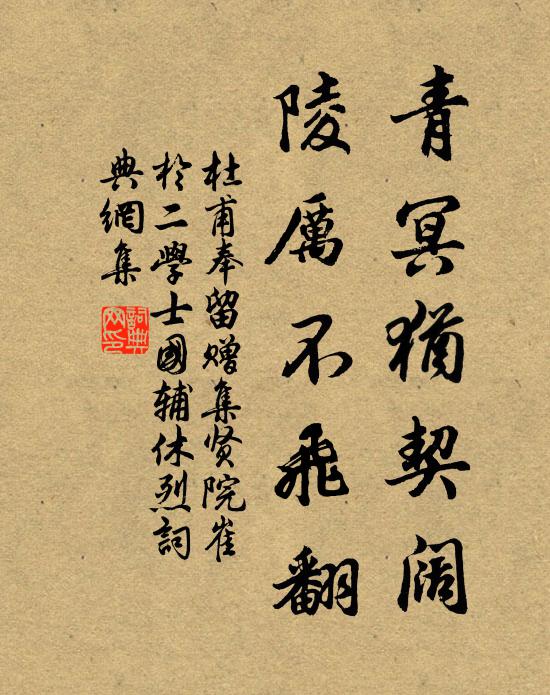 青冥猶契阔
陵厲不飛翻
杜甫奉留贈集贤院崔
於二學士國辅休烈詞
典網集
詞典网印